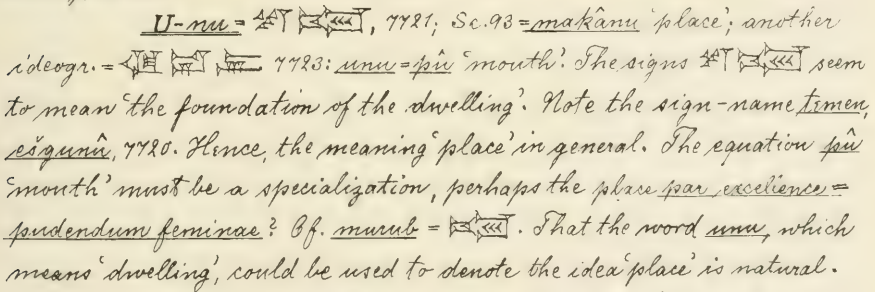 U-nu = 7721; Sc. 93 = makânu 'place'; another
ideogr. = 7723: unu = pû 'mouth'. The signs seem
to mean 'the foundation of the dwelling'. Note the sign-name temen,
ešgunû, 7720. Hence, the meaning 'place' in general. The equation pû
'mouth' must be a specialization, perhaps the place par excellence =
pudendum feminae? Cf. murub = . That the word unu, which
means 'dwelling', could be used to denote the idea 'place' is natural.